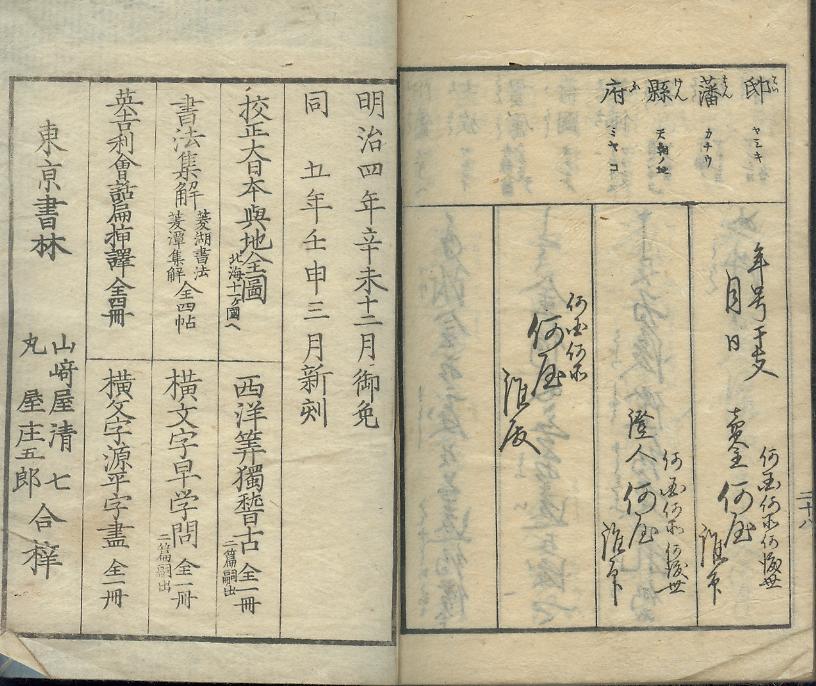 邸 てい ヤシキ
藩 はん カチウ
縣 けん 天朝ノ地
府 ふ ミヤコ
年号干支
月日
何国何所何渡世
賣主何屋
誰印
何国何所何渡世
證人何屋
誰印
何国何所
何屋
誰殿
明治四年辛未十二月御免
同 五年壬申三月新刻
校正大日本輿地全圖 北海十一ケ國入
西洋筭獨稽古 全一冊 二篇嗣出
書法集解 菱湖書法 菱潭集解 全四帖
横文字早学問 全一冊 二篇嗣出
英吉利會話篇挿譯 全四冊
横文字源平字盡 全一冊
東京書林
山﨑屋清七
丸屋庄五郎
合梓
三十八